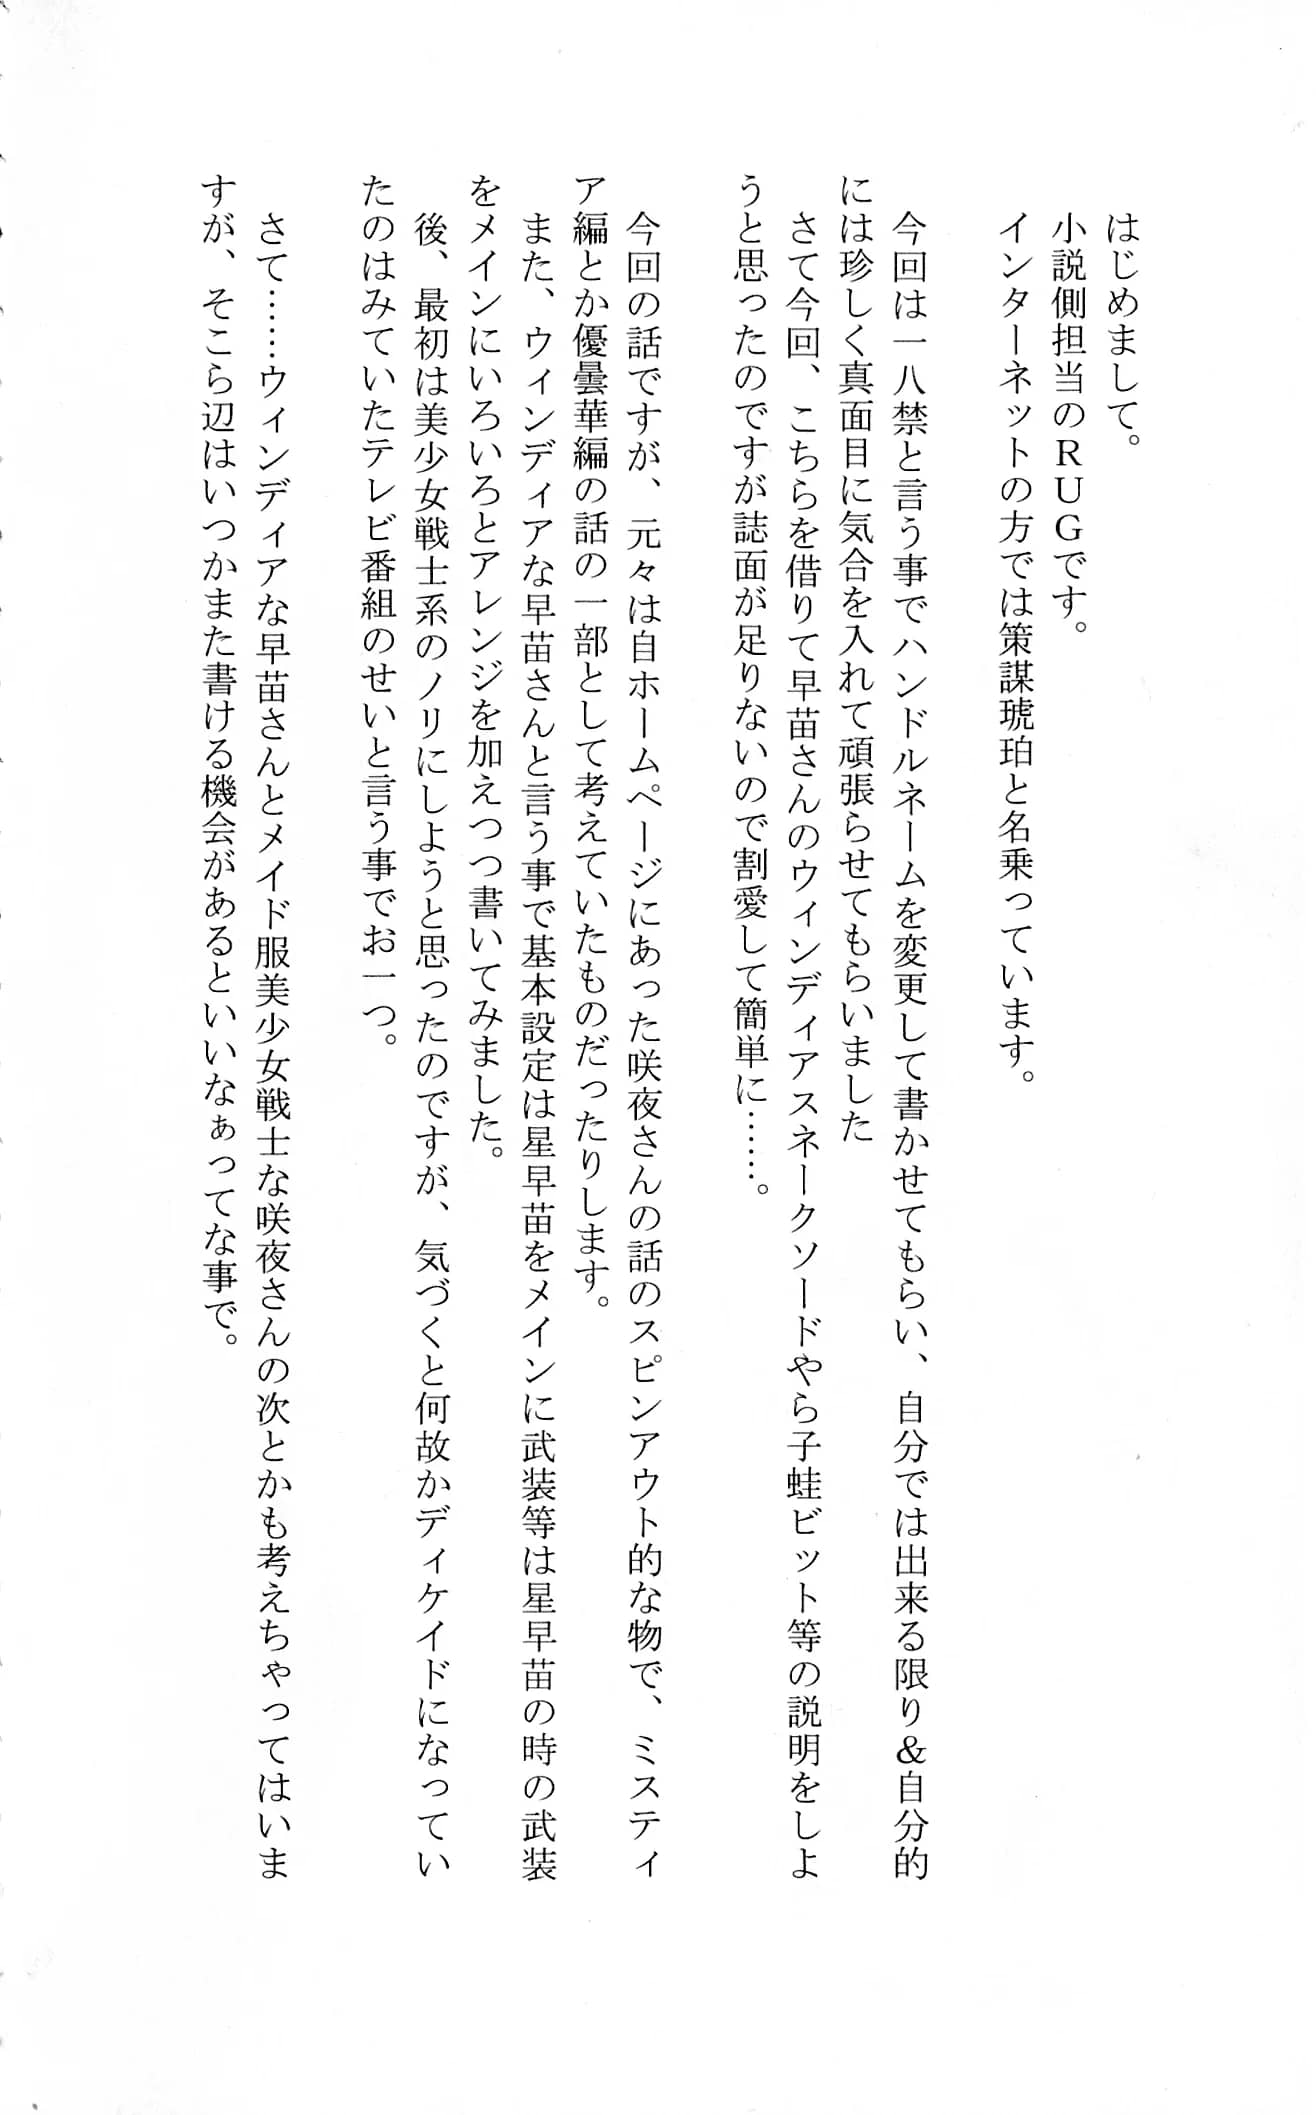 はじめまして。
小説側担当のＲＵＧです。
インターネットの方では策謀琥珀と名乗っています。
今回は一八禁と言う事でハンドルネームを変更して書かせてもらい、自分では出来る限り＆自分的
には珍しく真面目に気合を入れて頑張らせてもらいました
さて今回、こちらを借りて早苗さんのウィンディアスネークソードやら子蛙ビット等の説明をしよ
うと思ったのですが誌面が足りないので割愛して簡単に……。
今回の話ですが、元々は自ホームページにあった咲夜さんの話のスピンアウト的な物で、ミスティ
ア編とか優曇華編の話の一部として考えていたものだったりします。
また、ウィンディアな早苗さんと言う事で基本設定は星早苗をメインに武装等は星早苗の時の武装
をメインにいろいろとアレンジを加えつつ書いてみました。
後、最初は美少女戦士系のノリにしようと思ったのですが、気づくと何故かディケイドになってい
たのはみていたテレビ番組のせいと言う事でお一つ。
さて……ウィンディアな早苗さんとメイド服美少女戦士な咲夜さんの次とかも考えちゃってはいま
すが、そこら辺はいつかまた書ける機会があるといいなぁってな事で。